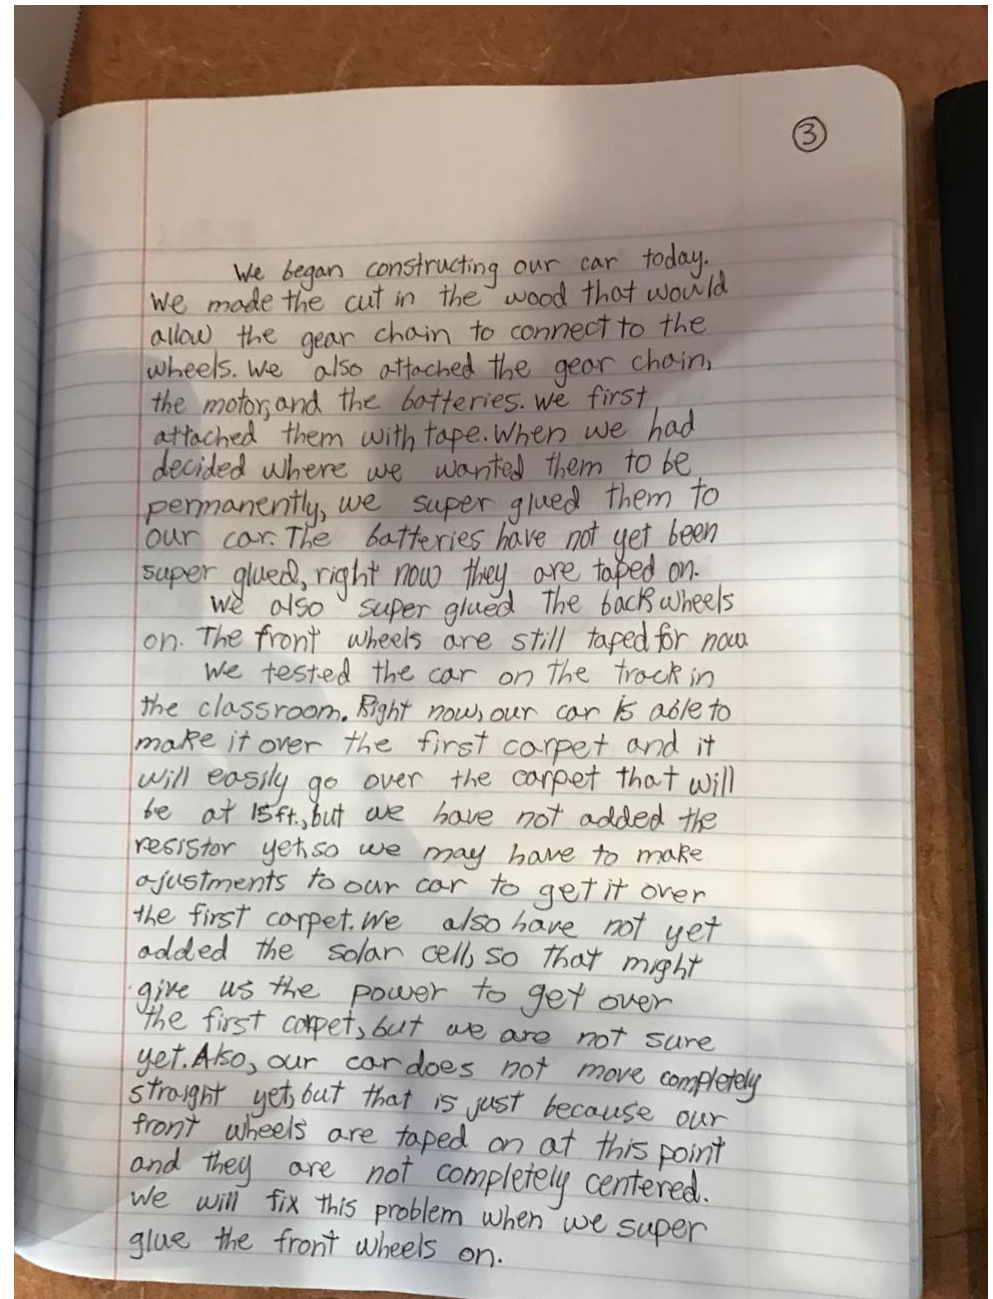 3
We began constructing our car today.
We made the cut in the wood that would
allow the gear chain to connect to the
wheels. We also attached the gear chain,
the motor, and the batteries. We first
attached them with tape. When we had
decided where we wanted them to be
permanently, we super glued them to
our car. The batteries have not yet been
super glued, right now they are taped on.
We also super glued the back wheels
on. The front wheels are still taped for now.
We tested the car on the track in
the classroom. Right now, our car is able to
make it over the first carpet and it
will easily go over the carpet that will
be at 15ft., but we have not added the
resistor yet, so we may have to make
ajustments to our car to get it over
the first carpet. We also have not yet
added the solar cell, so that might
give us the power to get over
the first carpet, but we are not sure
yet. Also, our car does not move completely
straight yet, but that is just because our
front wheels are taped on at this point
and they are not completely centered.
We will fix this problem when we super
glue the front wheels on.